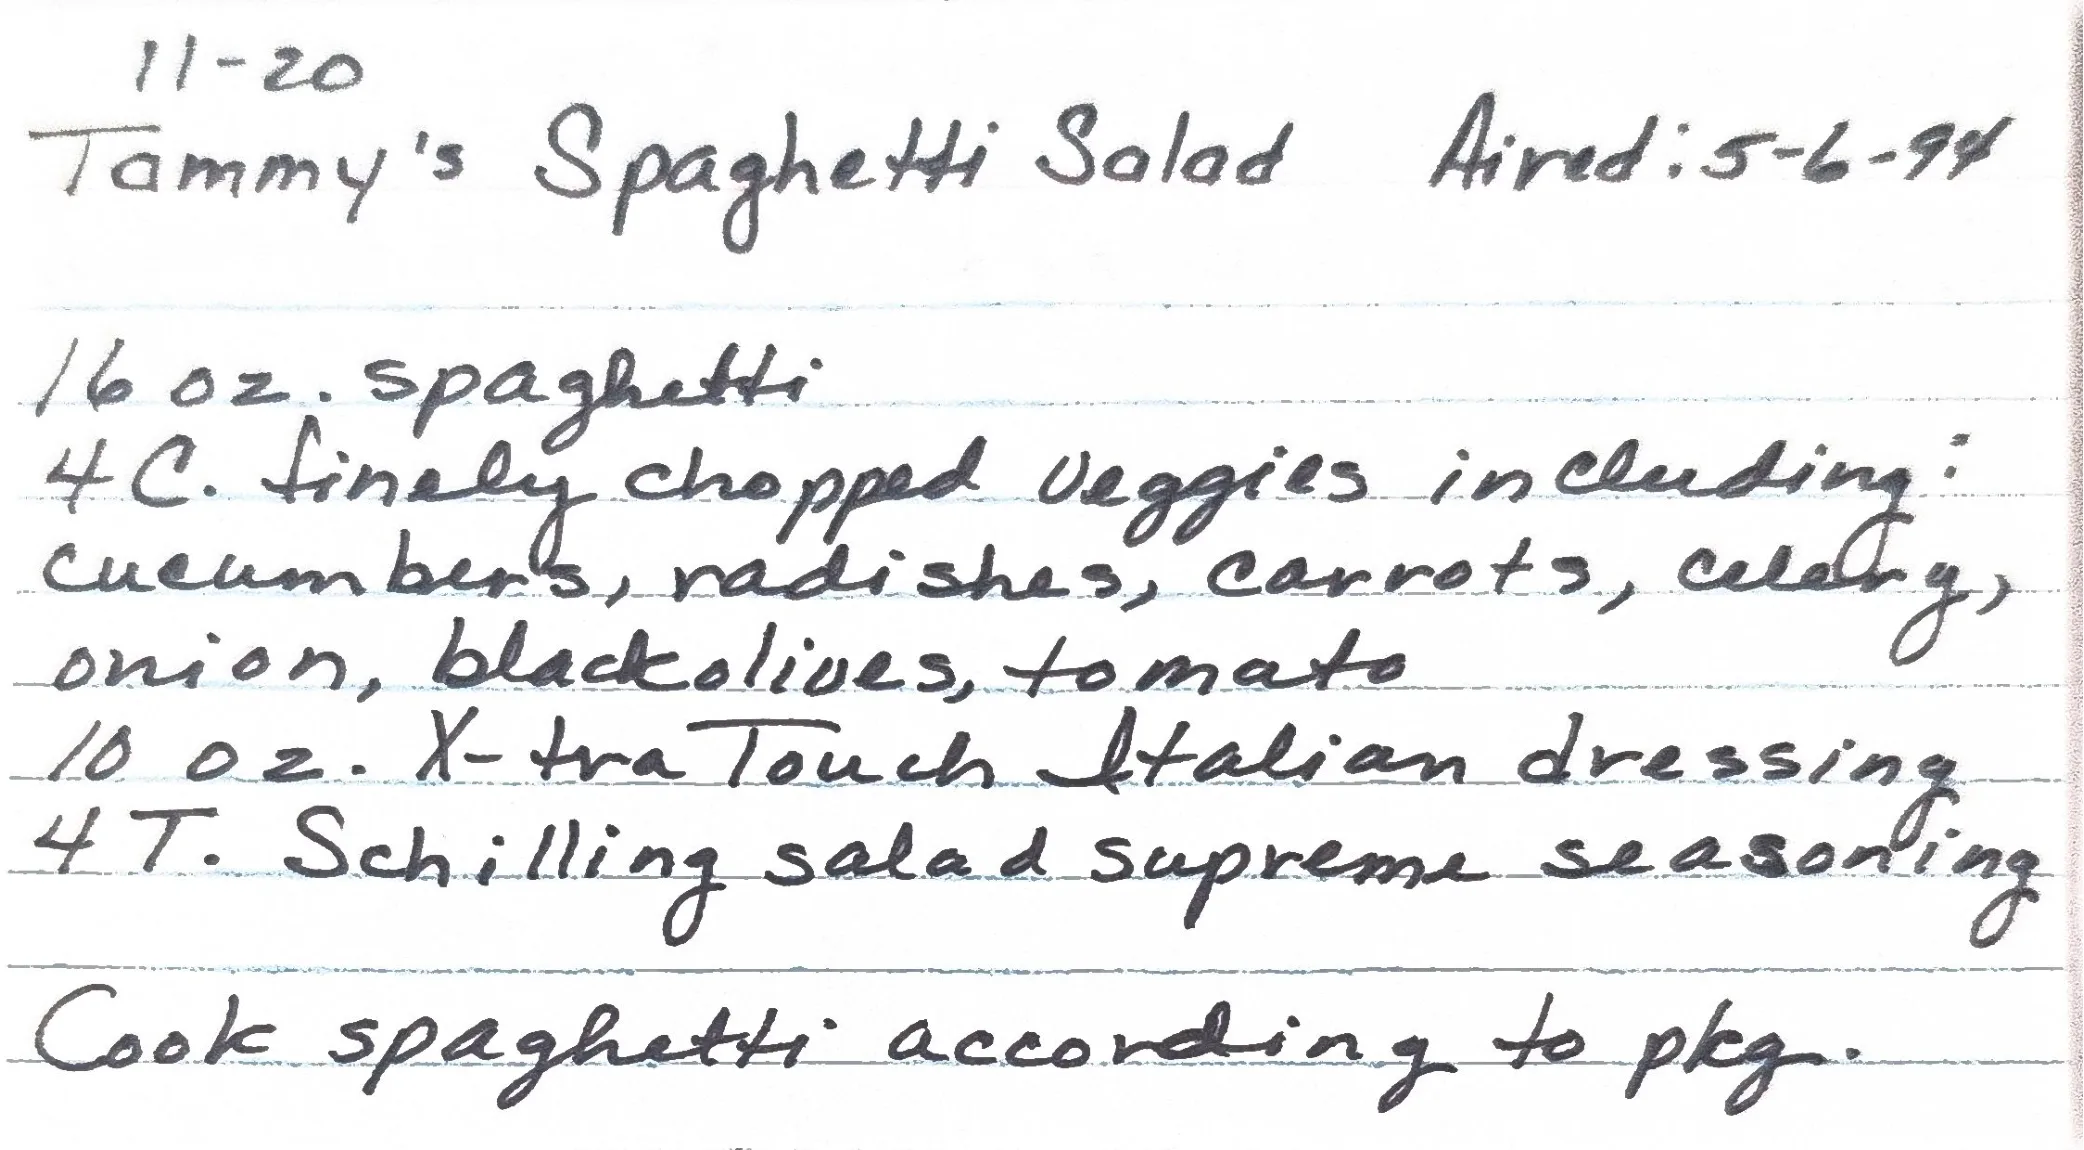 11-20
Tammy's Spaghetti Salad Aired: 5-6-94
16 oz. spaghetti
4 C. finely chopped veggies including:
cucumbers, radishes, carrots, celery,
onion, black olives, tomato
10 oz. X-tra Touch Italian dressing
4 T. Schilling salad supreme seasoning
Cook spaghetti according to pkg.